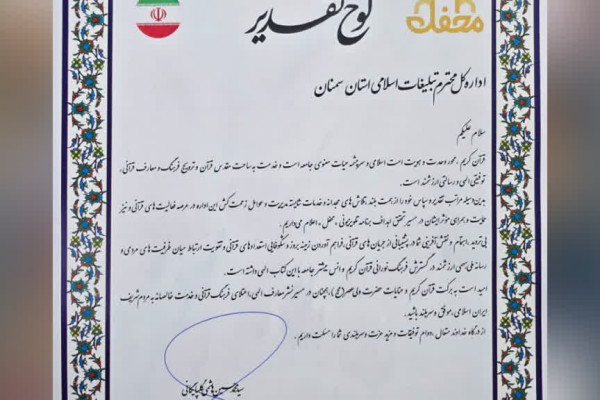 لوح تقدیر
محفل
اداره کل محترم تبلیغات اسلامی استان سمنان
سلام علیکم
قرآن کریم، محور وحدت و هویت امت اسلامی و سرچشمه حیات معنوی جامعه است و خدمت به ساحت مقدس قرآن و ترویج فرهنگ و معارف قرآنی،
توفیقی الهی و رسالتی ارزشمند است.
بدین‌وسیله مراتب تقدیر و سپاس خود را از همت بلند، تلاش‌های مجدانه و خدمات شایسته مدیریت و عوامل زحمت‌کش این اداره در عرصه فعالیت‌های قرآنی و نیز
حمایت و همراهی مؤثر ایشان در مسیر تحقق اهداف برنامه تلویزیونی «محفل» اعلام می‌داریم.
بی‌تردید، اهتمام و نقش‌آفرینی شما در پشتیبانی از جریان‌های قرآنی، فراهم آوردن زمینه بروز و شکوفایی استعدادهای قرآنی و تقویت ارتباط میان ظرفیت‌های مردمی و
رسانه ملی سهمی ارزشمند در گسترش فرهنگ نورانی قرآن کریم و انس بیشتر جامعه با این کتاب الهی داشته است.
امید است به برکت قرآن کریم و عنایات حضرت ولی‌عصر(عج)، همچنان در مسیر نشر معارف الهی، اعتلای فرهنگ قرآنی و خدمت خالصانه به مردم شریف
ایران اسلامی، موفق و سربلند باشید.
از درگاه خداوند متعال، دوام توفیقات و مزید عزت و سربلندی شما را مسئلت داریم.
سید محمدحسین هاشمی گلپایگانی